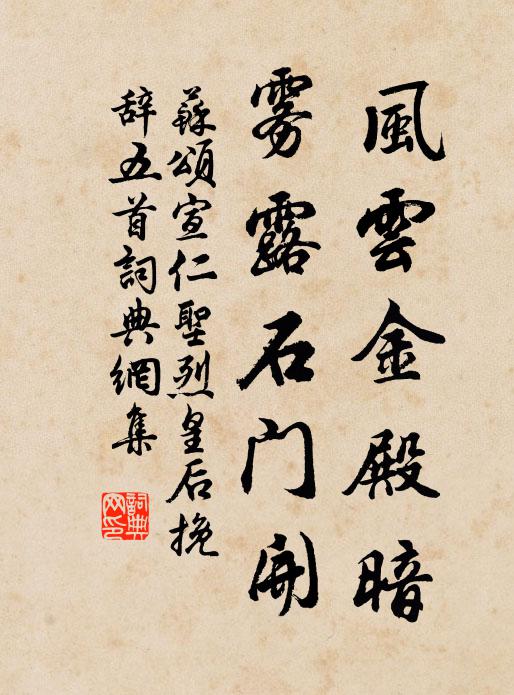 風雲金殿暗
雾露石门開
蘇頌宣仁聖烈皇后挽
辞五首詞典網集
詞典
网印